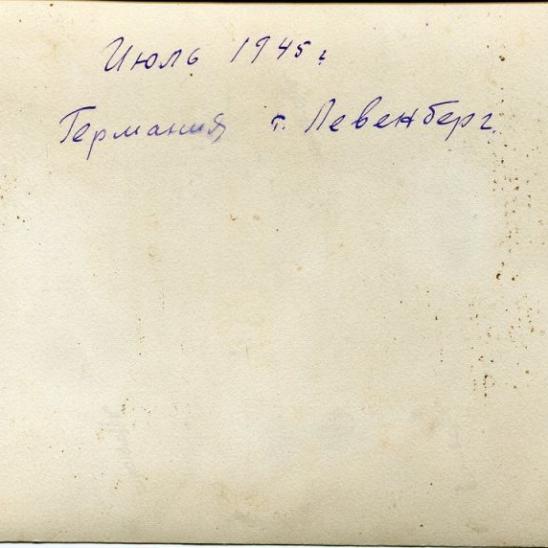 Июль 1945 г
Германия г. Левенберг.